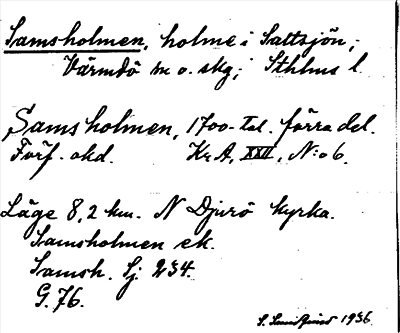 Samsholmen, holme i Saltsjön,
Värmdö sn o. skg, Sthlms l.
Samsholmen, 1700-tal. förra del.
Förf. okd. Kr A, XXII, N:o 6.
Läge 8,2 km. N Djurö kyrka.
Samsholmen ek.
Samsh. Sj. 234.
G. 76.
1936